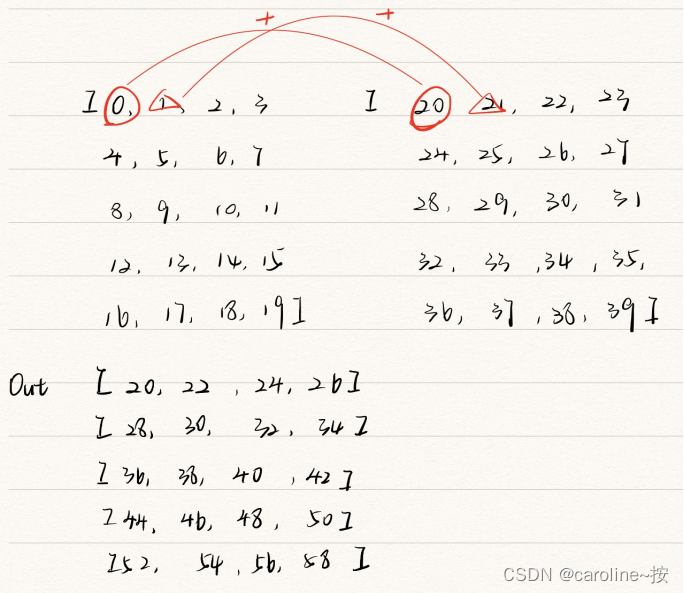 + +
[ 0, 1, 2, 3 [ 20 21, 22, 23
4, 5, 6, 7 24, 25, 26, 27
8, 9, 10, 11 28, 29, 30, 31
12, 13, 14, 15 32, 33, 34, 35,
16, 17, 18, 19] 36, 37, 38, 39]
Out [ 20, 22, 24, 26]
[ 28, 30, 32, 34]
[ 36, 38, 40, 42]
[ 44, 46, 48, 50]
[52, 54, 56, 58 ]
CSDN @caroline~按